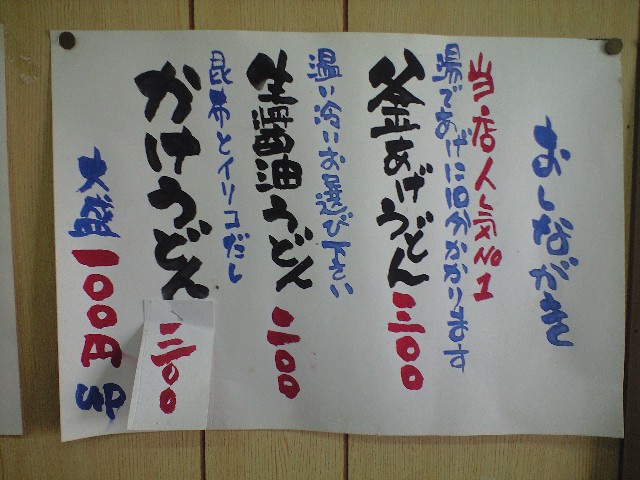 おしながき
当店人気No1
湯であげに10分かかります
釜あげうどん三00
温い冷いお選び下さい
生醤油うどん二00
昆布とイリコだし
かけうどん三00
大盛一00円UP